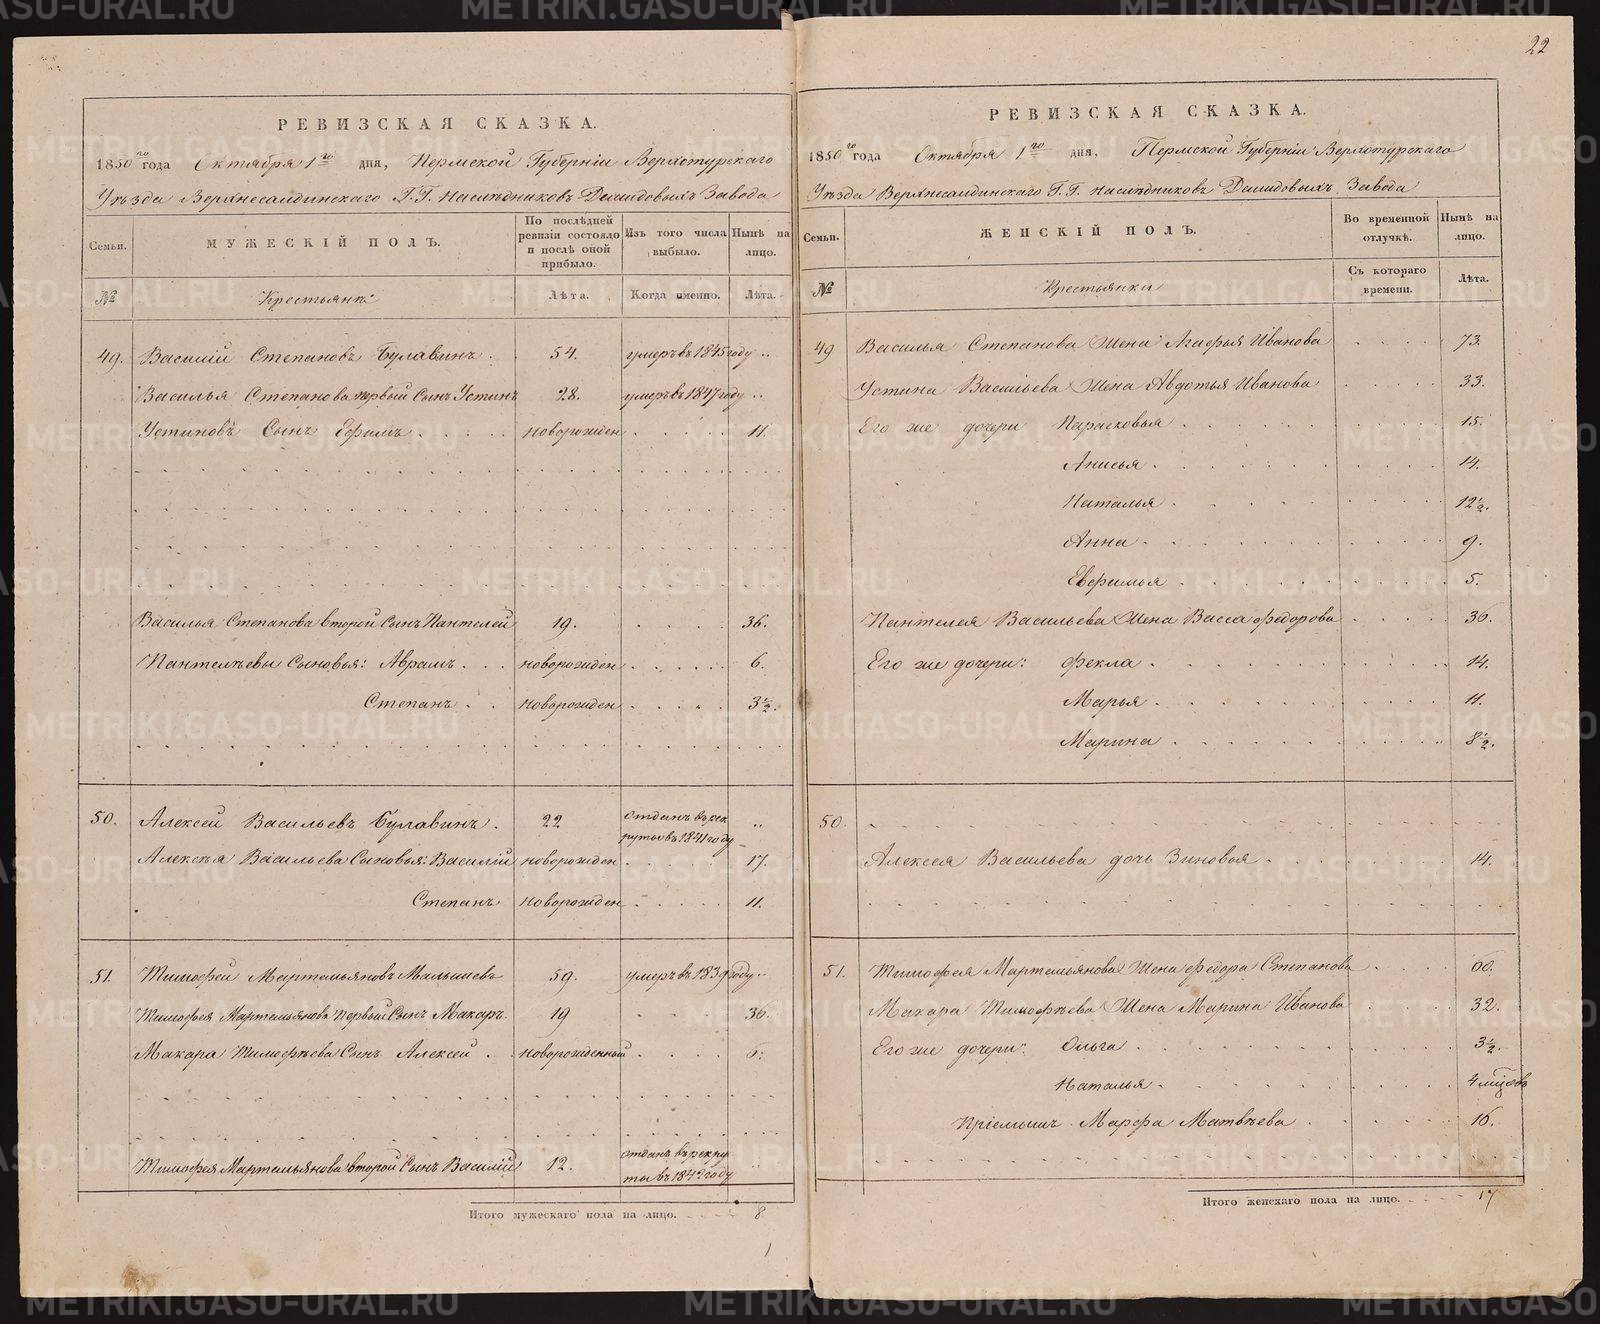 РЕВИЗСКАЯ СКАЗКА.
1850го года Октября 1го дня, Пермской Губерніи Верхотурскаго
Уѣзда Верхнесалдинскаго Г.Г. Наслѣдниковъ Демидовыхъ Завода
Семьи. МУЖЕСКІЙ ПОЛЪ. По послѣдней ревизіи состояло и послѣ оной прибыло. Изъ того числа выбыло. Нынѣ на лицо.
№ Крестьяне Лѣта. Когда именно. Лѣта.
49. Василій Степановъ Булавинъ. 54. умеръ въ 1845 году
Василья Степанова первый Сынъ Устинъ 28. умеръ въ 1847 году
Устиновъ Сынъ Ефимъ новорожден 11.
Василья Степанова второй Сынъ Пантелей 19. 36.
Пантелѣевы Сыновья: Аврамъ новорожден 6.
Степанъ новорожден 3½.
50. Алексей Васильевъ Булавинъ. 22 отданъ въ рек
руты въ 1841 году
Алексѣя Васильева Сыновья: Василій новорожден 17.
Степанъ новорожден 11.
51. Тимофей Мартемьяновъ Малышевъ 59. умеръ въ 1839 году
Тимофея Мартемьянова первый Сынъ Макаръ. 19 36.
Макара Тимофѣева Сынъ Алексей новорожденный 6.
Тимофея Мартемьянова второй Сынъ Василій 12. отданъ въ рекру
ты въ 1842 году
Итого мужескаго пола на лицо. 8
22
РЕВИЗСКАЯ СКАЗКА.
1850го года Октября 1го дня, Пермской Губерніи Верхотурскаго
Уѣзда Верхнесалдинскаго Г.Г. наслѣдниковъ Демидовыхъ Завода
Семьи. ЖЕНСКІЙ ПОЛЪ. Во временной отлучкѣ. Нынѣ на лицо.
№ Крестьянки Съ котораго времени. Лѣта.
49 Василья Степанова Жена Агафья Иванова 73.
Устина Васильева Жена Авдотья Иванова 33.
Его же дочери Парасковья 15.
Анисья 14.
Наталья 12½.
Анна 9.
Евфимья 5.
Пантелея Васильева Жена Васса Федорова 36.
Его же дочери: Фекла 14.
Марья 11.
Марина 8½.
50.
Алексея Васильева дочь Зиновья 14.
51. Тимофея Мартемьянова Жена Федора Степанова 60.
Макара Тимофѣева Жена Марина Иванова 32.
Его же дочери: Ольга 3½.
Наталья 4 мѣсцовъ
Пріемышъ Марфа Матвѣева 16.
Итого женскаго пола на лицо. 17
METRIKI.GASO-URAL.RU